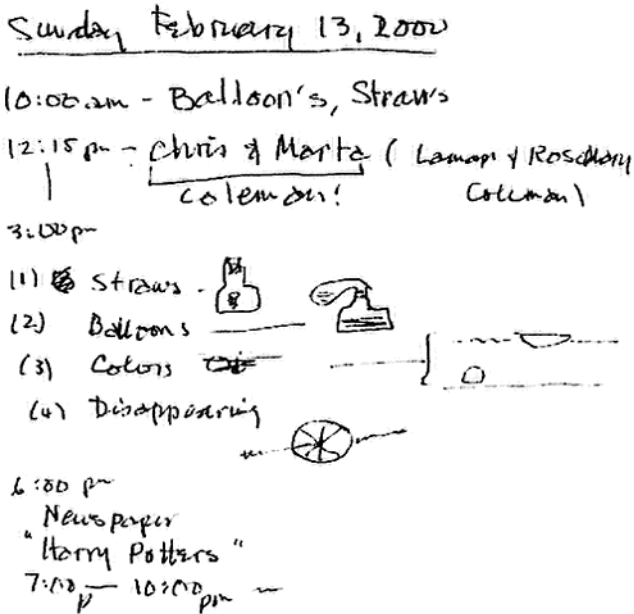 Sunday February 13, 2000
10:00 am - Balloon's, Straws
12:15 pm - Chris & Marta ( & Rosemary
Coleman! Coleman)
3:00 pm
(1) Straws -
(2) Balloons
(3) Colors
(4) Disappearing
6:00 pm
Newspaper
"Harry Potters"
7:00 p — 10:00 pm —